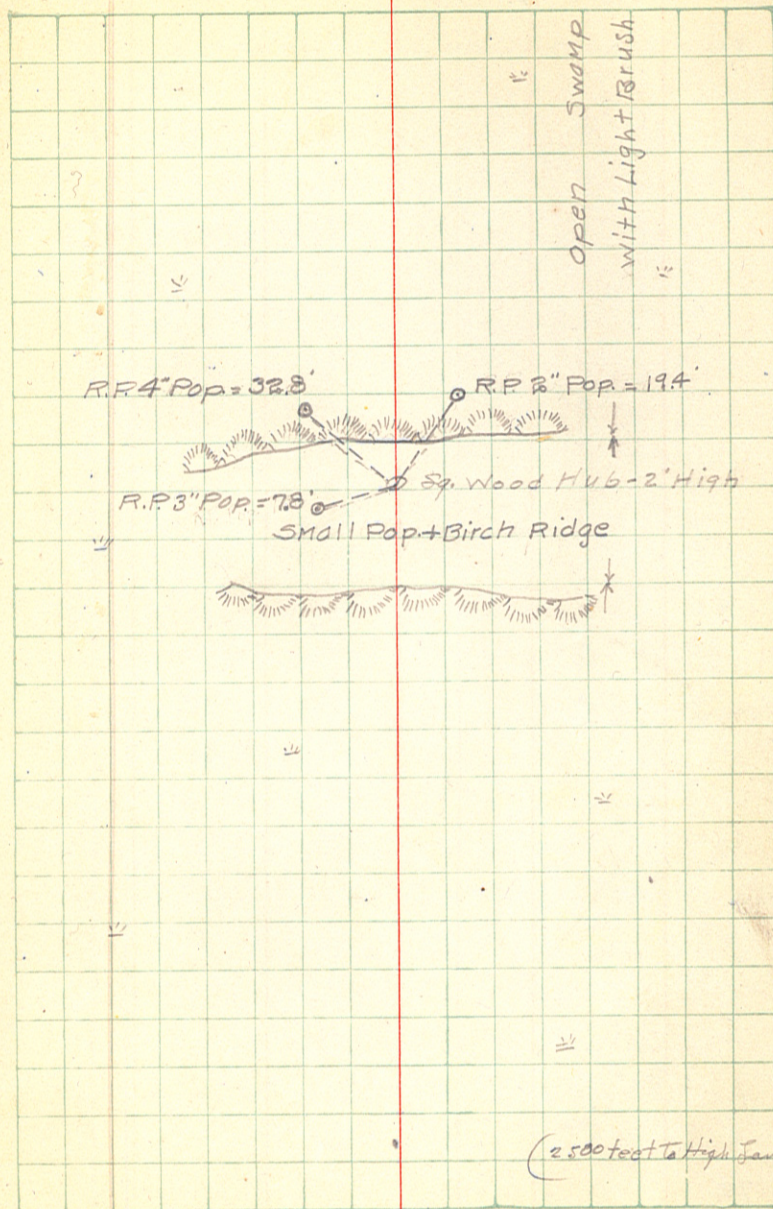 Open Swamp
with Light Brush
R.P. 4" Pop. = 32.8'
R.P. 2" Pop. = 19.4'
Sq. Wood Hub - 2' High
R.P. 3" Pop. = 7.8'
Small Pop. + Birch Ridge
(2500 feet To High